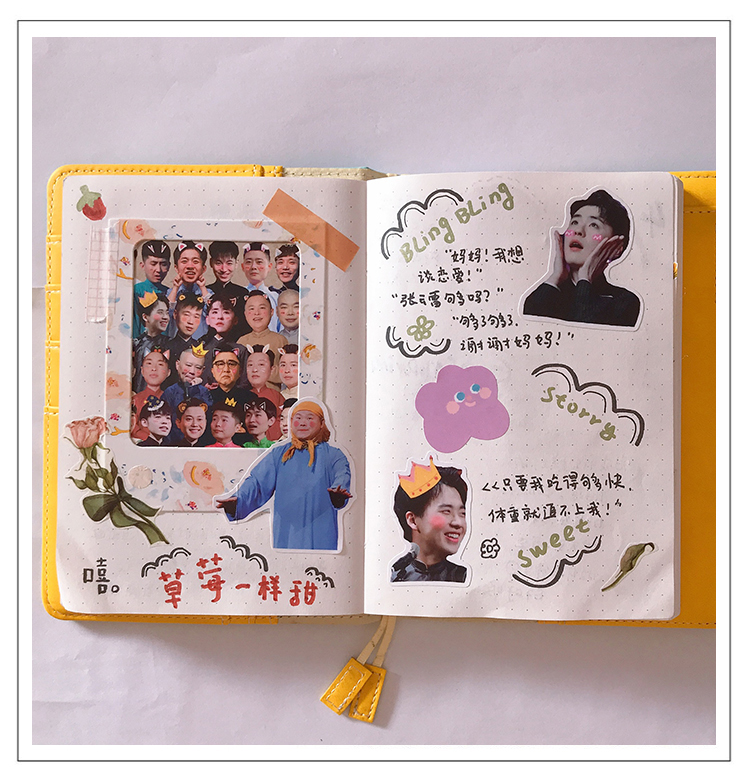 嘻。
草莓一样甜
BLing BLing
"妈妈！我想
谈恋爱！"
"张云雷够吗？"
"够了够了.
谢谢妈妈！"
Storry
<<只要我吃得够快.
体重就追不上我！"
Sweet